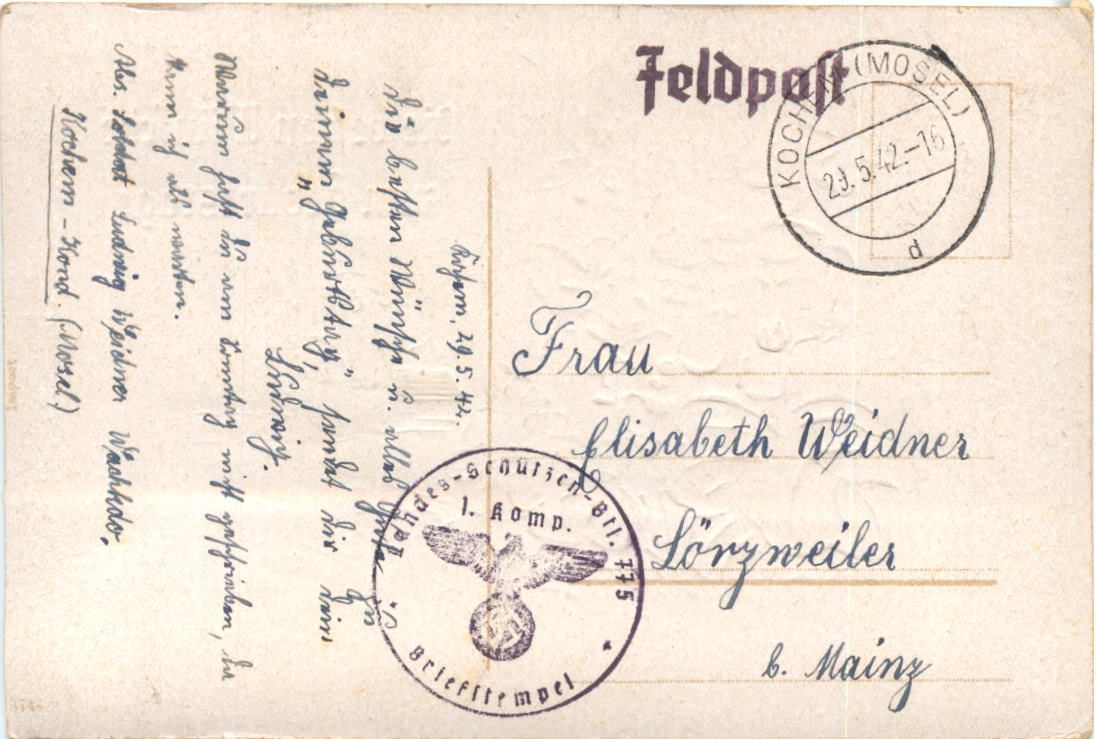 Feldpost
KOCHEM (MOSEL)
29.5.42.-16
d
Frau
Elisabeth Weidner
Lörzweiler
b. Mainz
Landes-Schützen-Btl. 775
1. Komp.
Briefstempel
Kochem, 29.5.42.
Die besten Wünsche u. alles Gute zu
Deinem Geburtstag, sendet dir dein
Ludwig.
Warum hast du am Sonntag nicht geschrieben, du
kann ich als warten.
Abs. Soldat Ludwig Weidner Wachkdo.
Kochem - Kond. (Mosel)